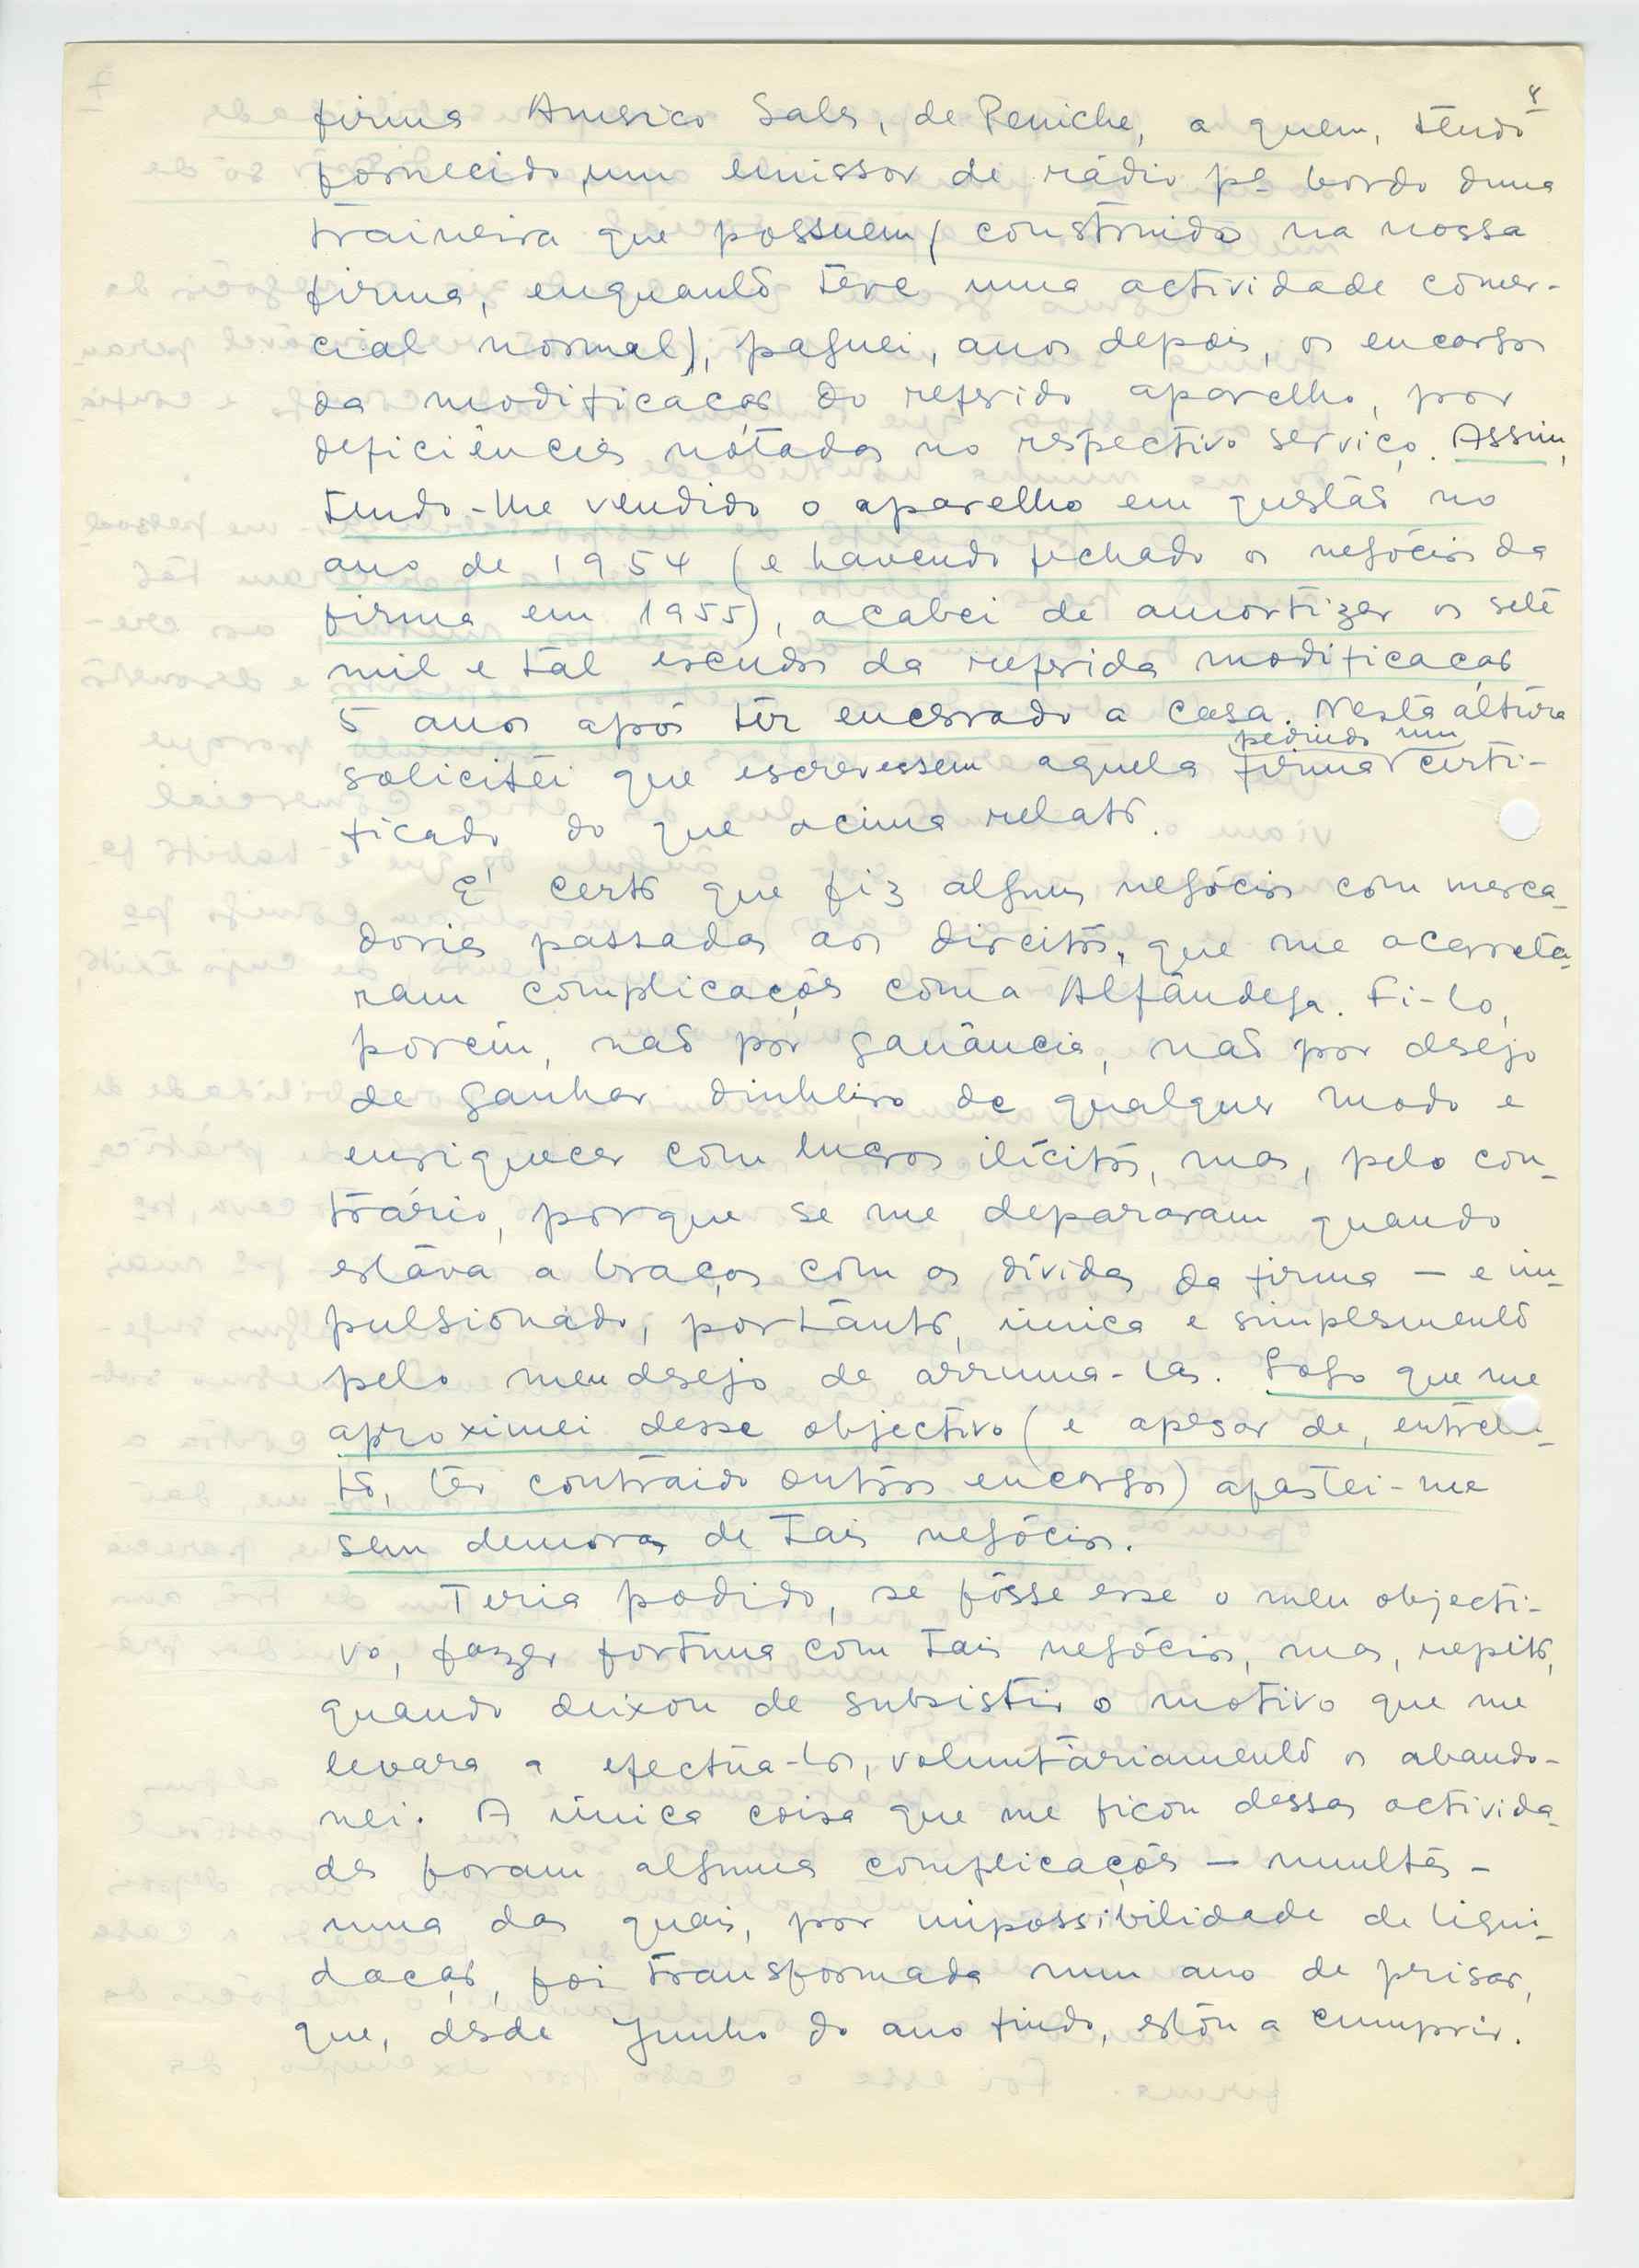 8
firma Americo Sales, de Peniche, a quem, tendo
fornecido um emissor de rádio pª bordo duma
traineira que possuem (construida na nossa
firma, enquanto teve uma actividade comer-
cial normal), paguei, anos depois, os encargos
da modificação do referido aparelho, por
deficiências notadas no respectivo serviço. Assim,
tendo-lhe vendido o aparelho em questão no
ano de 1954 (e havendo fechado os negócios da
firma em 1955), acabei de amortizar os sete
mil e tal escudos da referida modificação
5 anos após ter encerrado a casa. Nesta altura
pedindo um
solicitei que escrevessem aquela firma certi-
ficado do que acima relato.
É certo que fiz alguns negócios com merca-
dorias passadas aos direitos, que me acarreta-
ram complicações com a Alfândega. Fi-lo,
porém, não por ganância, não por desejo
de ganhar dinheiro de qualquer modo e
enriquecer com lucros ilícitos, mas, pelo con-
trário, porque se me depararam quando
estava a braços com as dívidas da firma — e im-
pulsionado, portanto, única e simplesmente
pelo meu desejo de arruma-las. Logo que me
aproximei desse objectivo (e apesar de, entretan-
to, ter contraido outros encargos) afastei-me
sem demoras de tais negócios.
Teria podido, se fôsse esse o meu objecti-
vo, fazer fortuna com tais negócios, mas, repito,
quando deixou de subsistir o motivo que me
levara a efectua-los, voluntàriamente os abando-
nei. A única coisa que me ficou dessas activida-
des foram algumas complicações — multas —
uma das quais, por impossibilidade de liqui-
dação, foi transformada num ano de prisão,
que, desde Junho do ano findo, estou a cumprir.